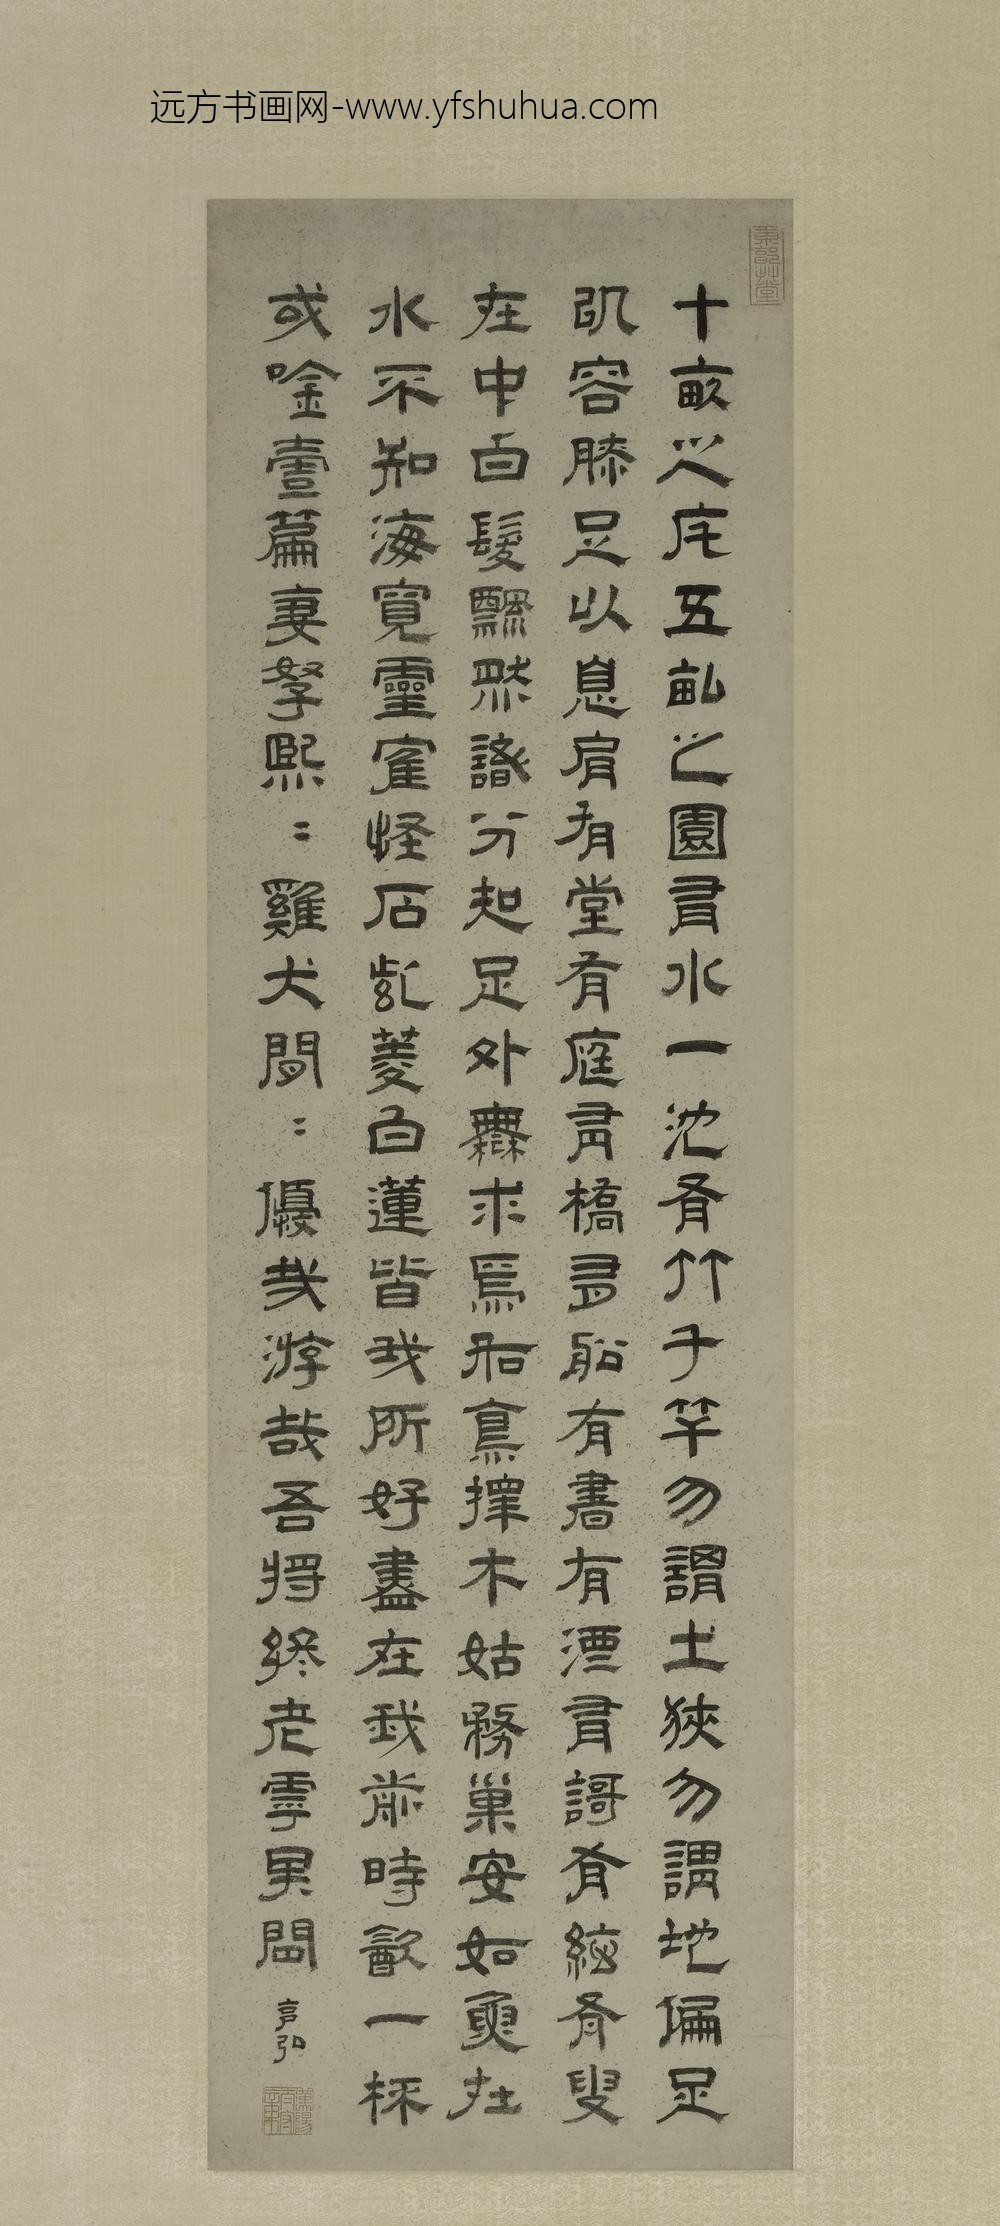 远方书画网-www.yfshuhua.com
東郡草堂
十畝之宅五畝之園有水一池有竹千竿勿謂土狹勿謂地偏足
以容膝足以息肩有堂有庭有橋有船有書有酒有謌有絃有叟
在中白髮飄然識分知足外無求焉如鳥擇木姑務巢安如魚在
水不知海寬靈寉怪石紫菱白蓮皆我所好盡在我前時飲一杯
或唫壹篇妻孥熙〻雞犬閒〻優哉游哉吾將終老乎其間